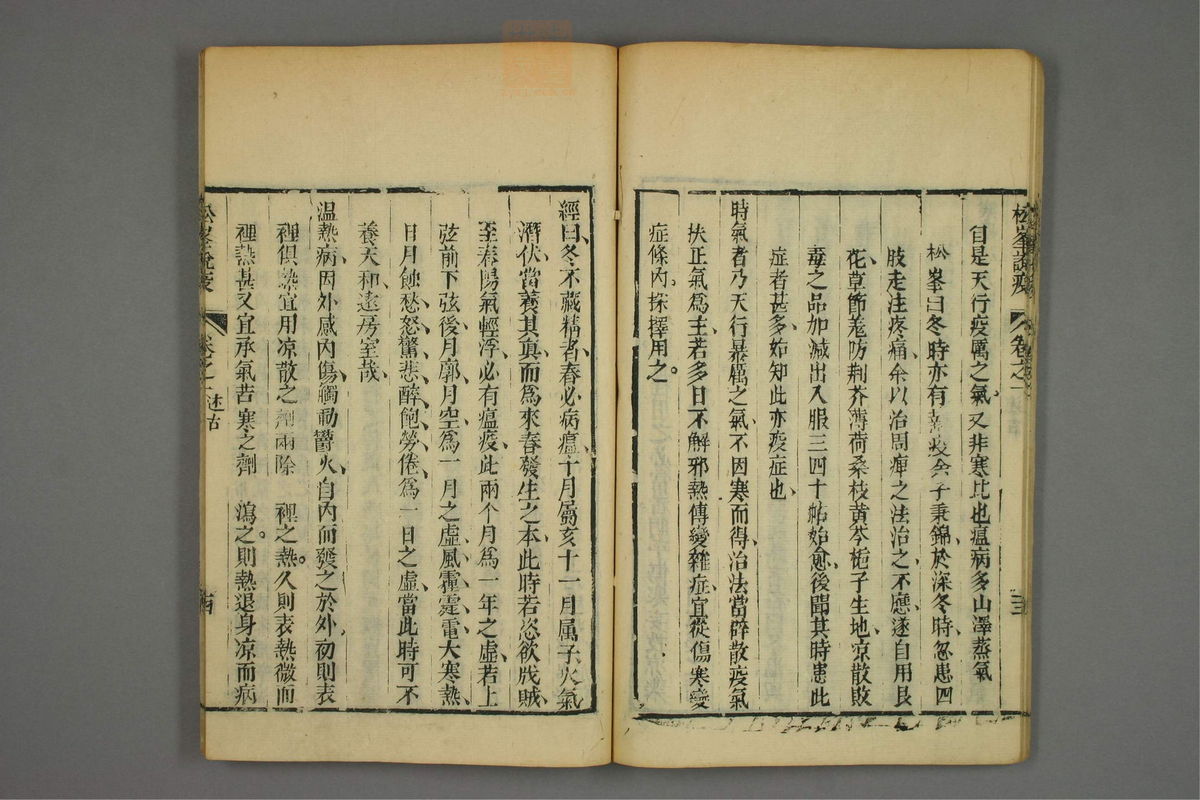 松峯說疫
卷之一
自是天行疫厲之氣又非寒比也瘟病多山澤蒸氣
松峯曰冬時亦有 疫余子秉錦於深冬時忽患四
肢走注疼痛余以治周痺之法治之不應遂自用艮
花草節羗防荆芥薄荷桑枝黄芩梔子生地凉散敗
毒之品加減出入服三四十帖始愈後聞其時患此
症者甚多始知此亦疫症也
時氣者乃天行暴厲之氣不因寒而得治法當辟散疫氣
扶正氣爲主若多日不解邪熱傳變雜症宜從傷寒變
症條内採擇用之
經曰冬不藏精者春必病瘟十月屬亥十一月属子火氣
潛伏當養其真而爲來春發生之本此時若恣欲戕賊
至春陽氣輕浮必有瘟疫此兩个月爲一年之虛若上
弦前下弦後月廓月空爲一月之虛風霾霆電大寒熱
日月蝕愁怒驚悲醉飽勞倦爲一日之虛當此時可不
養天和遠房室哉
温熱病因外感内傷觸動欝火自内而發之於外初則表
裡俱熱宜用凉散之劑兩除 裡之熱久則表熱微而
裡熱甚又宜承氣苦寒之劑 瀉之則熱退身凉而病
松峯說疫
卷之一
述古